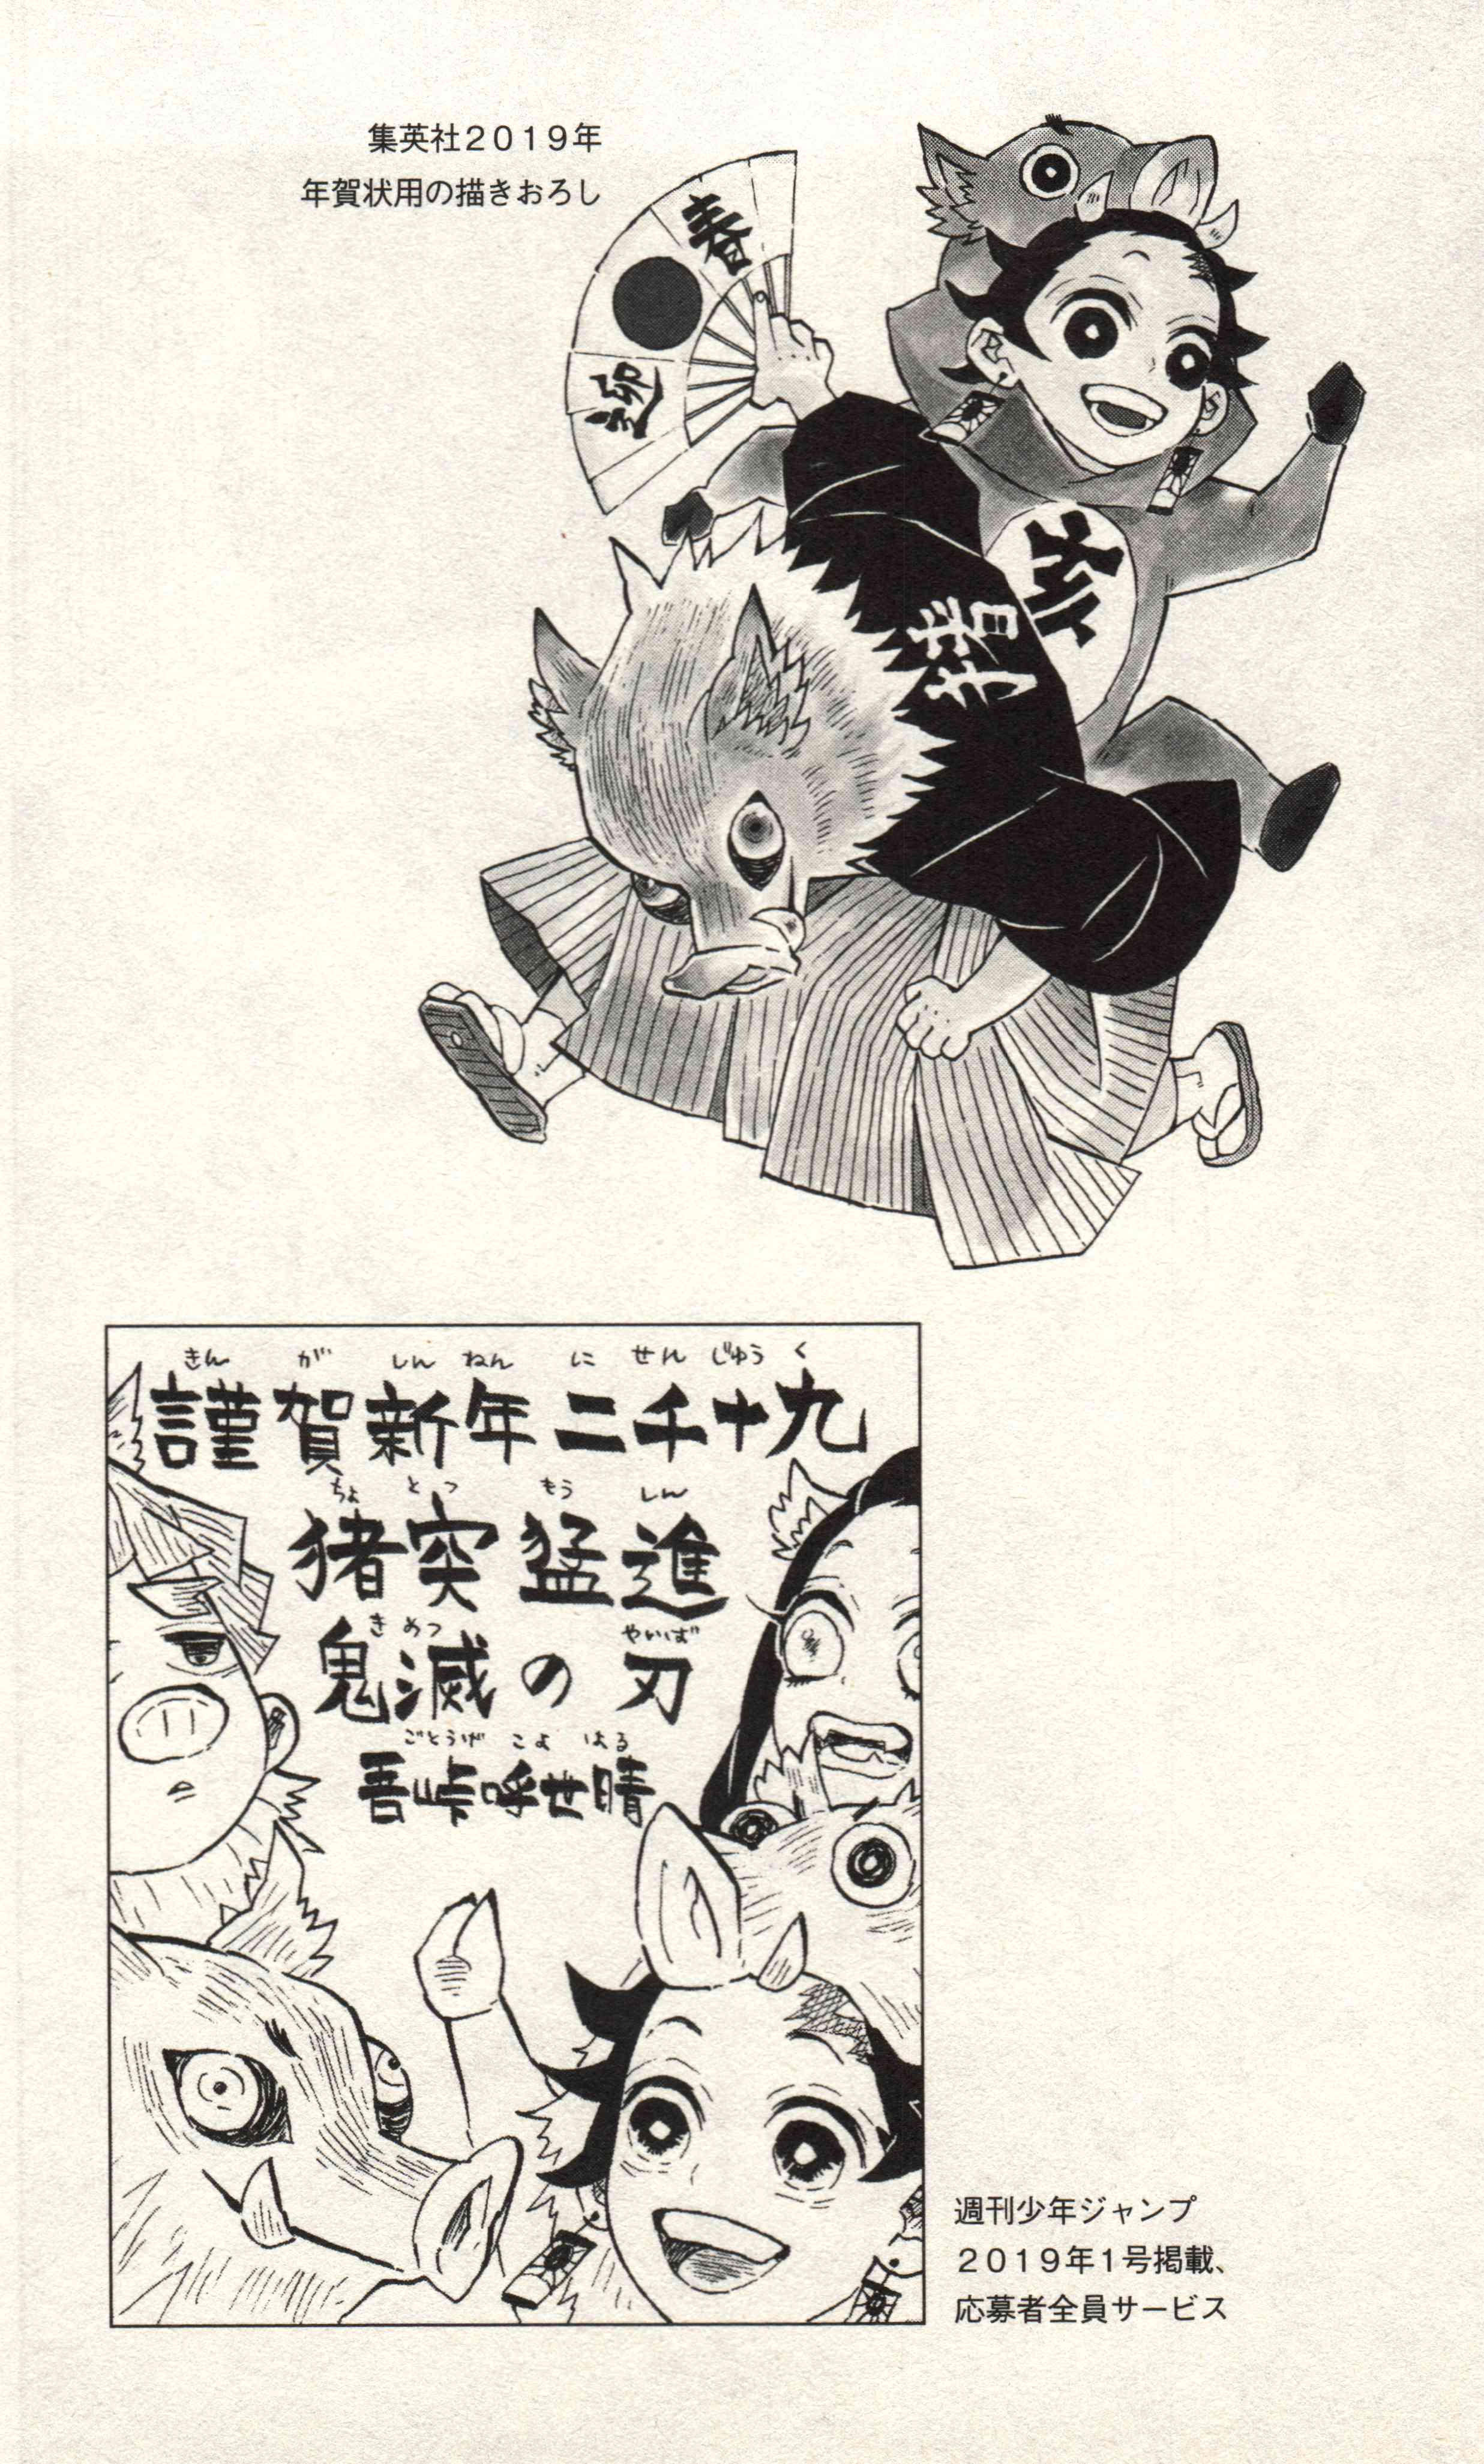 集英社2019年
年賀状用の描きおろし
春
迎
亥
猪
きん が しん ねん に せん じゅう く
謹賀新年二千十九
ちょ とつ もう しん
猪突猛進
き めつ やいば
鬼滅の刃
ごとうげ こよ はる
吾峠呼世晴
週刊少年ジャンプ
2019年1号掲載、
応募者全員サービス